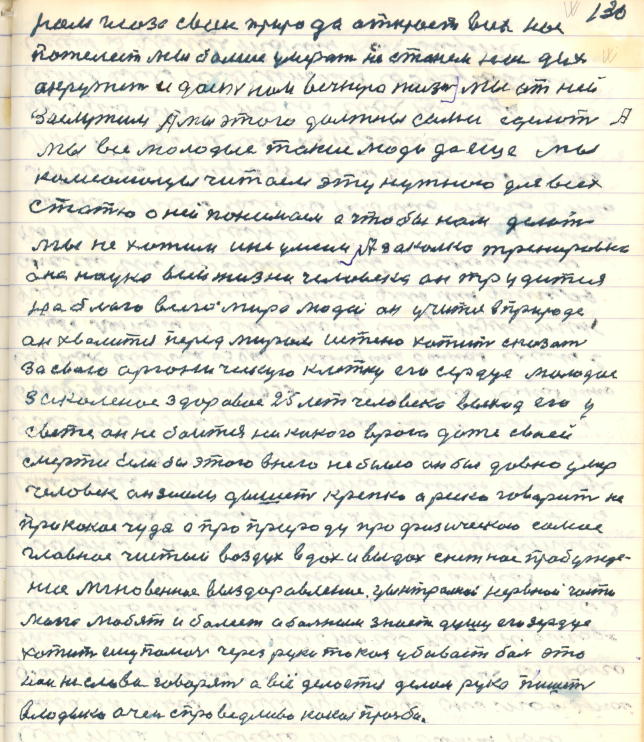 130
нам глаза своей природа откроет всех нас
пожелает мы больше умирать не станем нам дух
окружит и даст нам вечную жизнь мы от ней
заслужим А мы этого должны сами сделать А
мы все молодые такие люди да еще мы
комсомольцы читаем эту нужного для всех
статью о ней понимаем а чтобы нам делать
мы не хотим и не умеем А закалка тренировка
она наука всей жизни человека он трудится
на благо всего мира людей он учится в природе
он хвалится перед миром истено хотит сказать
за свою органическую клетку его сердце молодое
закаленое здоровое 25 лет человека выход его у
света он не боится никакого врага даже своей
смерти Если бы этого в него не было он был давно умер
человек он земли дышет крепко а резко говорит не
при какое чудо а про природу про физическое самое
главное чистый воздух вдох и выдох снежное пробужде-
ние мгновенное выздоравление, центральной нервной части
мозга любят и болеет а больным знает душу его сердце
хотит ему помоч через руки током убивает бол это
нам не слова говорят а всё делается делом рука пишет
владыко очен справедливо какая прозба.